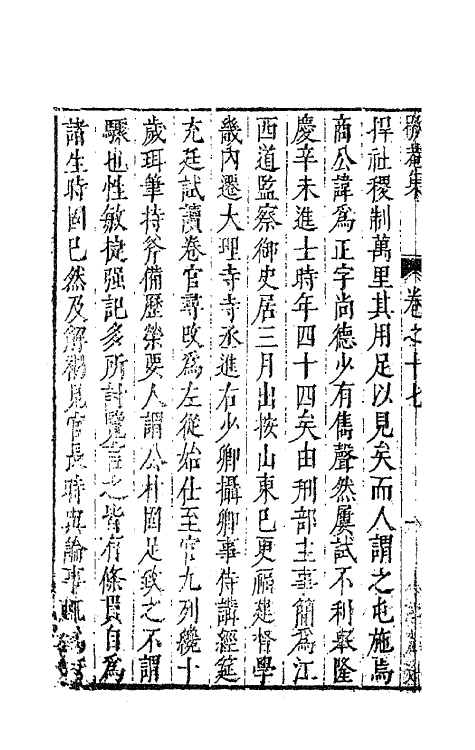 卷之十七
捍社稷制萬里其用足以見矣而人謂之屯施焉
商公諱為正字尚德少有雋聲然屢試不利舉隆
慶辛未進士時年四十四矣由刑部主事簡為江
西道監察御史居三月出按山東已更福建督學
畿內遷大理寺寺丞進右少卿攝卿事侍講經筵
充廷試讀卷官尋改為左從始仕至官九列纔十
歲珥筆持斧備歷榮要人謂公材固足致之不謂
驟也性敏捷强記多所討覽言之皆有條貫自為
諸生時固已然及解褐見官長時與論事輒